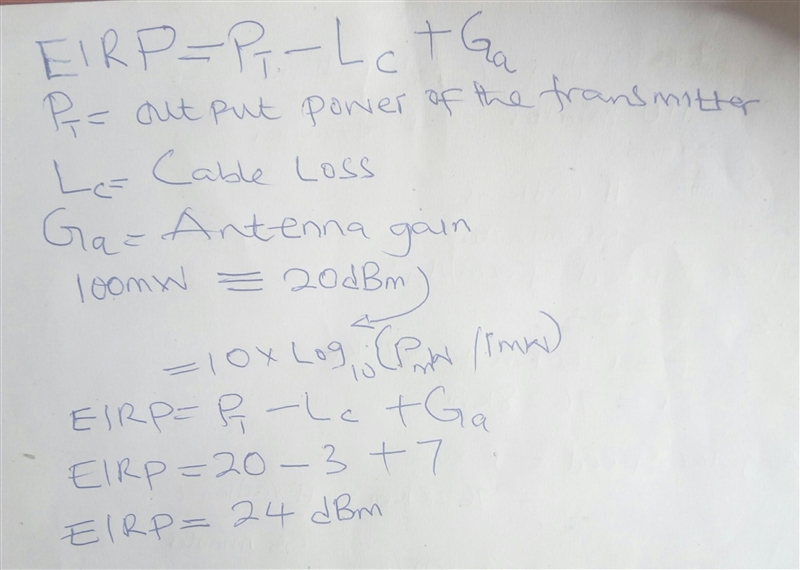 EIRP = P_T - L_C + G_a
P_T = output power of the transmitter
L_C = Cable Loss
G_a = Antenna gain
100mW ≡ 20dBm
= 10 × Log_10 (P_mW / 1mW)
EIRP = P_T - L_C + G_a
EIRP = 20 - 3 + 7
EIRP = 24 dBm